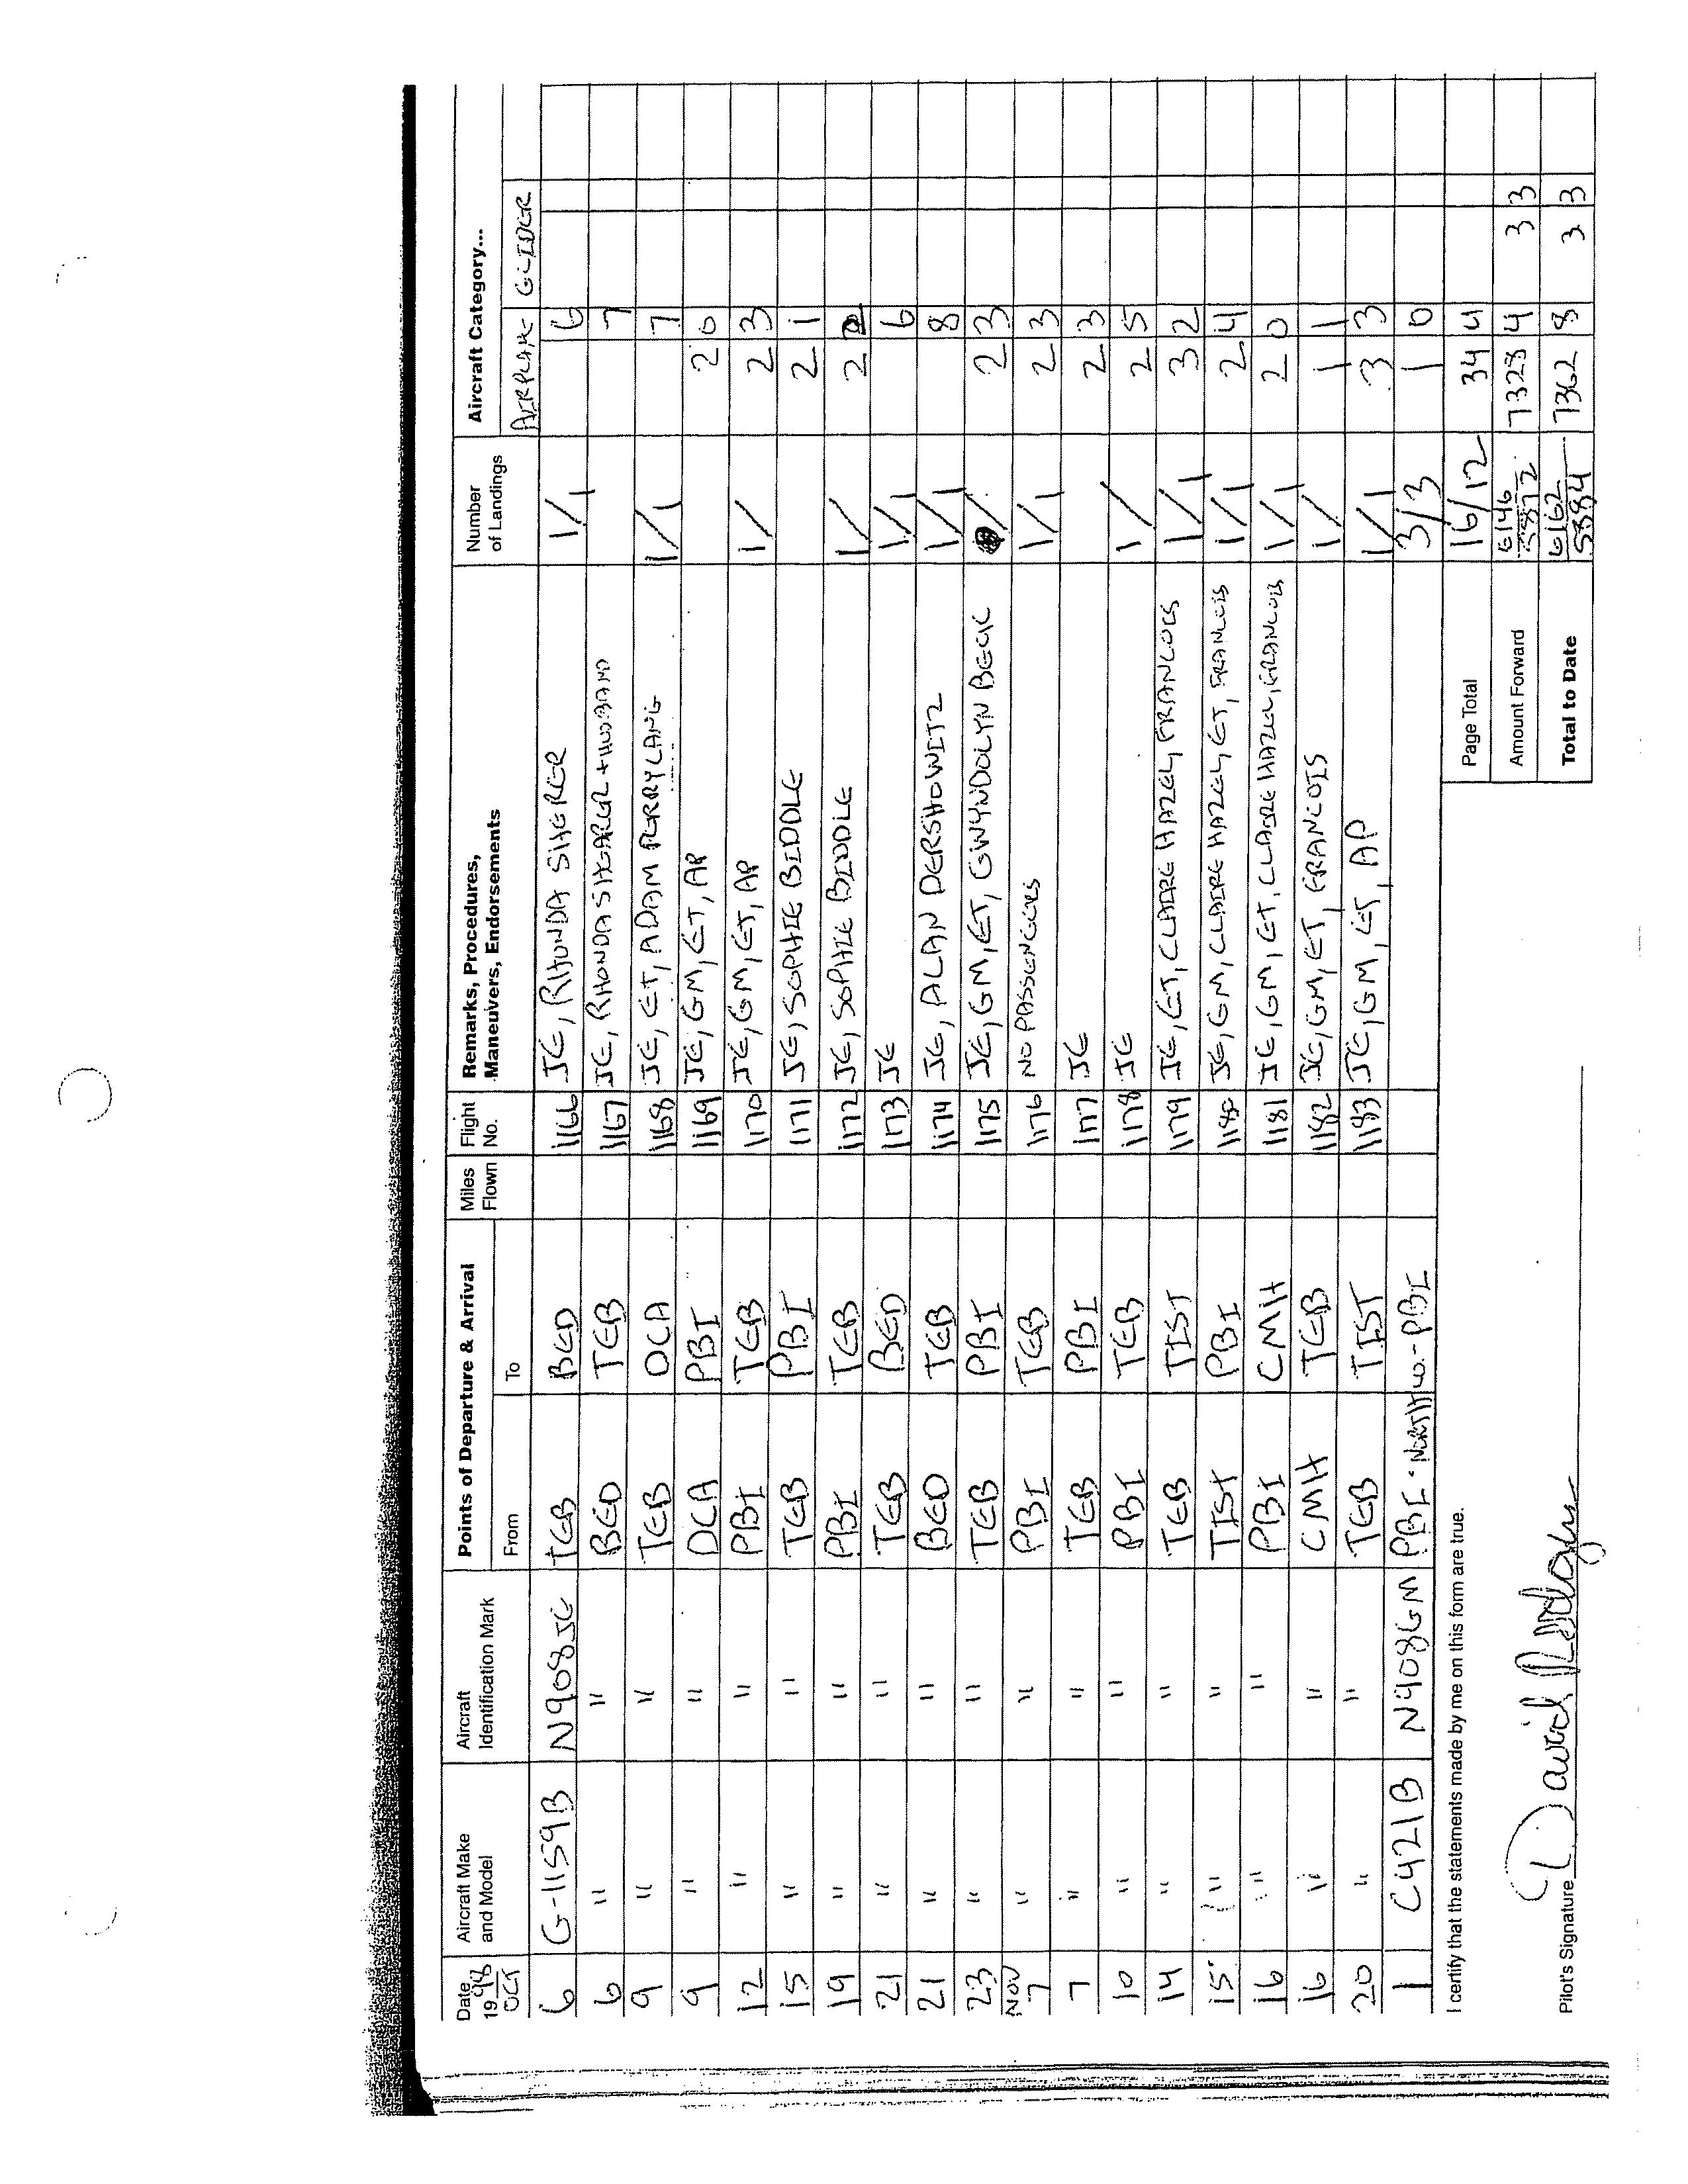 Date 19 98 OCT | Aircraft Make and Model | Aircraft Identification Mark | Points of Departure & Arrival From | To | Miles Flown | Flight No. | Remarks, Procedures, Maneuvers, Endorsements | Number of Landings | Aircraft Category... AIRPLANE | GLIDER
6 | G-1159B | N908JE | TEB | BED | 1166 | JE, RHONDA SHERER | 1/1 | 6
6 | " | " | BED | TEB | 1167 | JE, RHONDA SHEARER + HUSBAND | 7
9 | " | " | TEB | DCA | 1168 | JE, ET, ADAM PERRY LANG | 1/1 | 7
9 | " | " | DCA | PBI | 1169 | JE, GM, ET, AP | 2 0
12 | " | " | PBI | TEB | 1170 | JE, GM, ET, AP | 1/ | 2 3
15 | " | " | TEB | PBI | 1171 | JE, SOPHIE BIDDLE | 2 1
19 | " | " | PBI | TEB | 1172 | JE, SOPHIE BIDDLE | 1/ | 2
21 | " | " | TEB | BED | 1173 | JE | 1/1 | 6
21 | " | " | BED | TEB | 1174 | JE, ALAN DERSHOWITZ | 1/1 | 8
23 | " | " | TEB | PBI | 1175 | JE, GM, ET, GWYNDOLYN BECK | / | 2 3
NOV 7 | " | " | PBI | TEB | 1176 | NO PASSENGERS | 1/1 | 2 3
7 | " | " | TEB | PBI | 1177 | JE | 2 3
10 | " | " | PBI | TEB | 1178 | JE | 1/ | 2 5
14 | " | " | TEB | TIST | 1179 | JE, ET, CLAIRE HAZEL, FRANCOIS | 1/1 | 3 2
15 | " | " | TIST | PBI | 1180 | JE, GM, CLAIRE HAZEL, ET, FRANCOIS | 1/1 | 2 4
16 | " | " | PBI | CMH | 1181 | JE, GM, ET, CLAIRE HAZEL, FRANCOIS | 1/1 | 2 0
16 | " | " | CMH | TEB | 1182 | JE, GM, ET, FRANCOIS | 1/ | 1 1
20 | " | " | TEB | TIST | 1183 | JE, GM, ET, AP | 1/1 | 3 3
1 | C421B | N908GM | PBI - | - PBI | 3/3 | 1 0
I certify that the statements made by me on this form are true. | Page Total | 16/12 | 34 4
Amount Forward | 6146 | 7328 4 | 3 3
Pilot's Signature David Rodgers | Total to Date | 6162 5884 | 7362 8 | 3 3